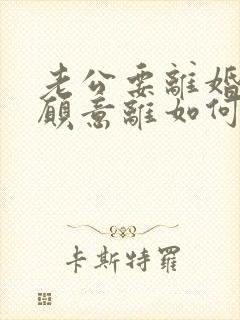 老公要離婚
願意離如何
卡斯特羅